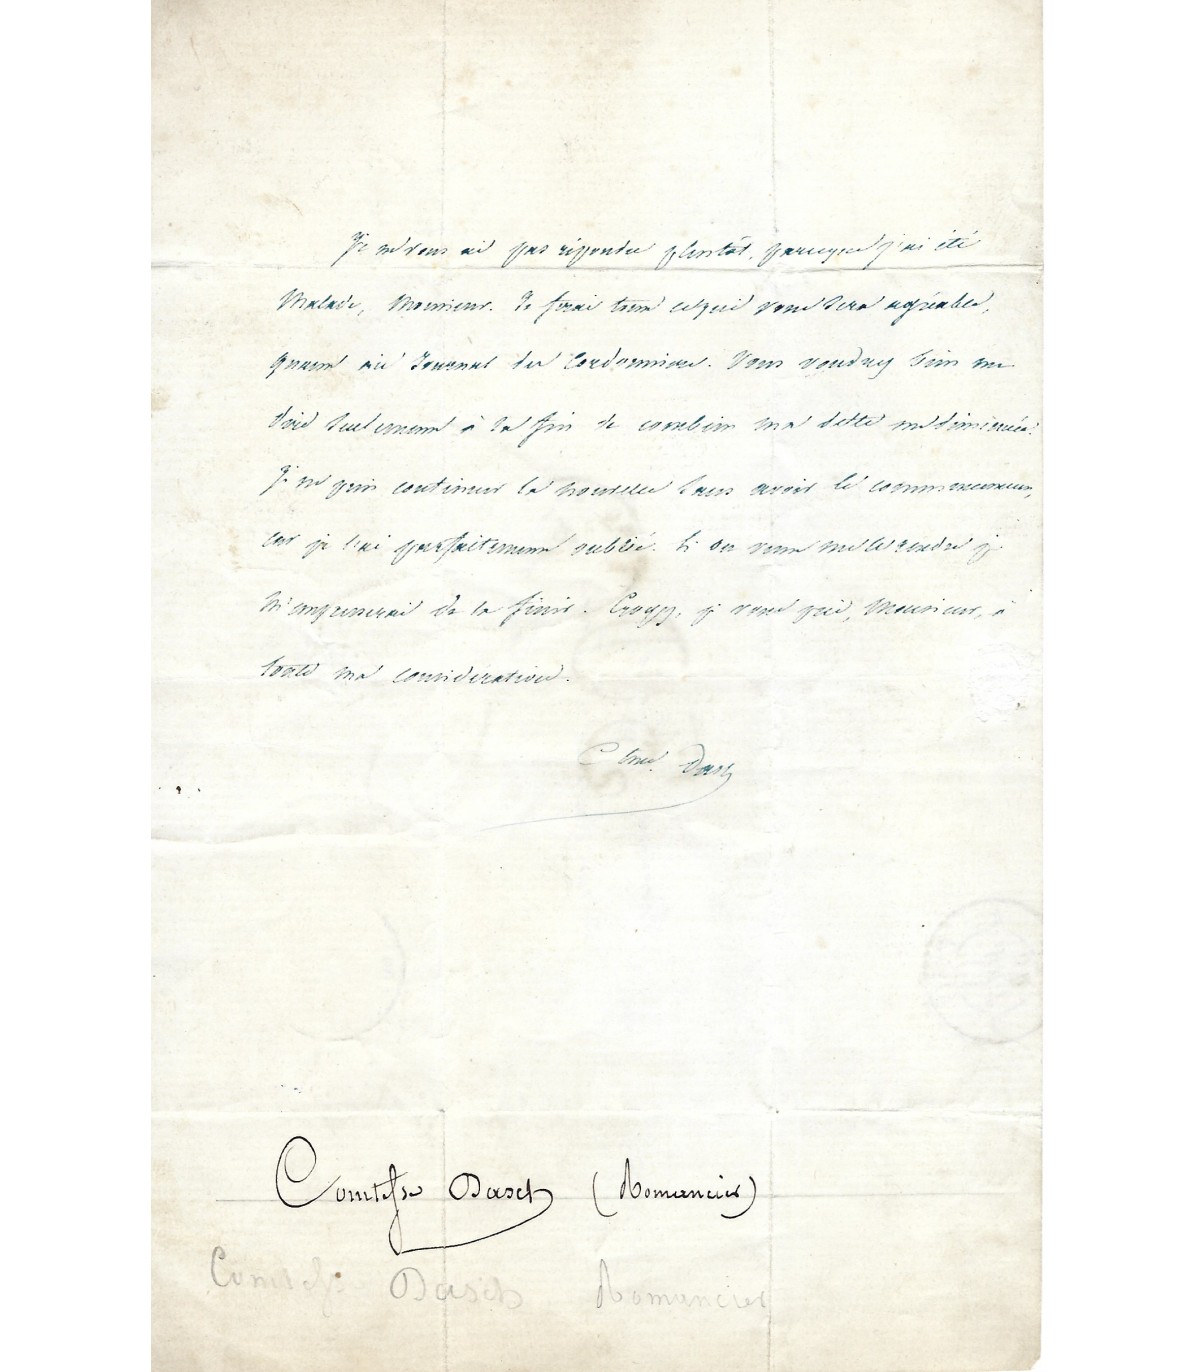 Je ne vous ai pas répondu plustôt, parceque j'ai été
Malade, Monsieur. Je ferai tout cequi vous sera agréable,
quant au Journal des Cordonniers. Vous voudrez bien me
dire seulement à la fin de combien ma dette est diminuée.
Je ne puis continuer la nouvelle sans avoir le commencement,
car je l'ai parfaitement oublié. Si on veut me le rendre je
m'empresserai de la finir. Croyez, je vous prie, Monsieur, à
toute ma considération.
Ctesse. Dash
Comtesse Dasch (Romancier)
Comtesse Dasch Romancier